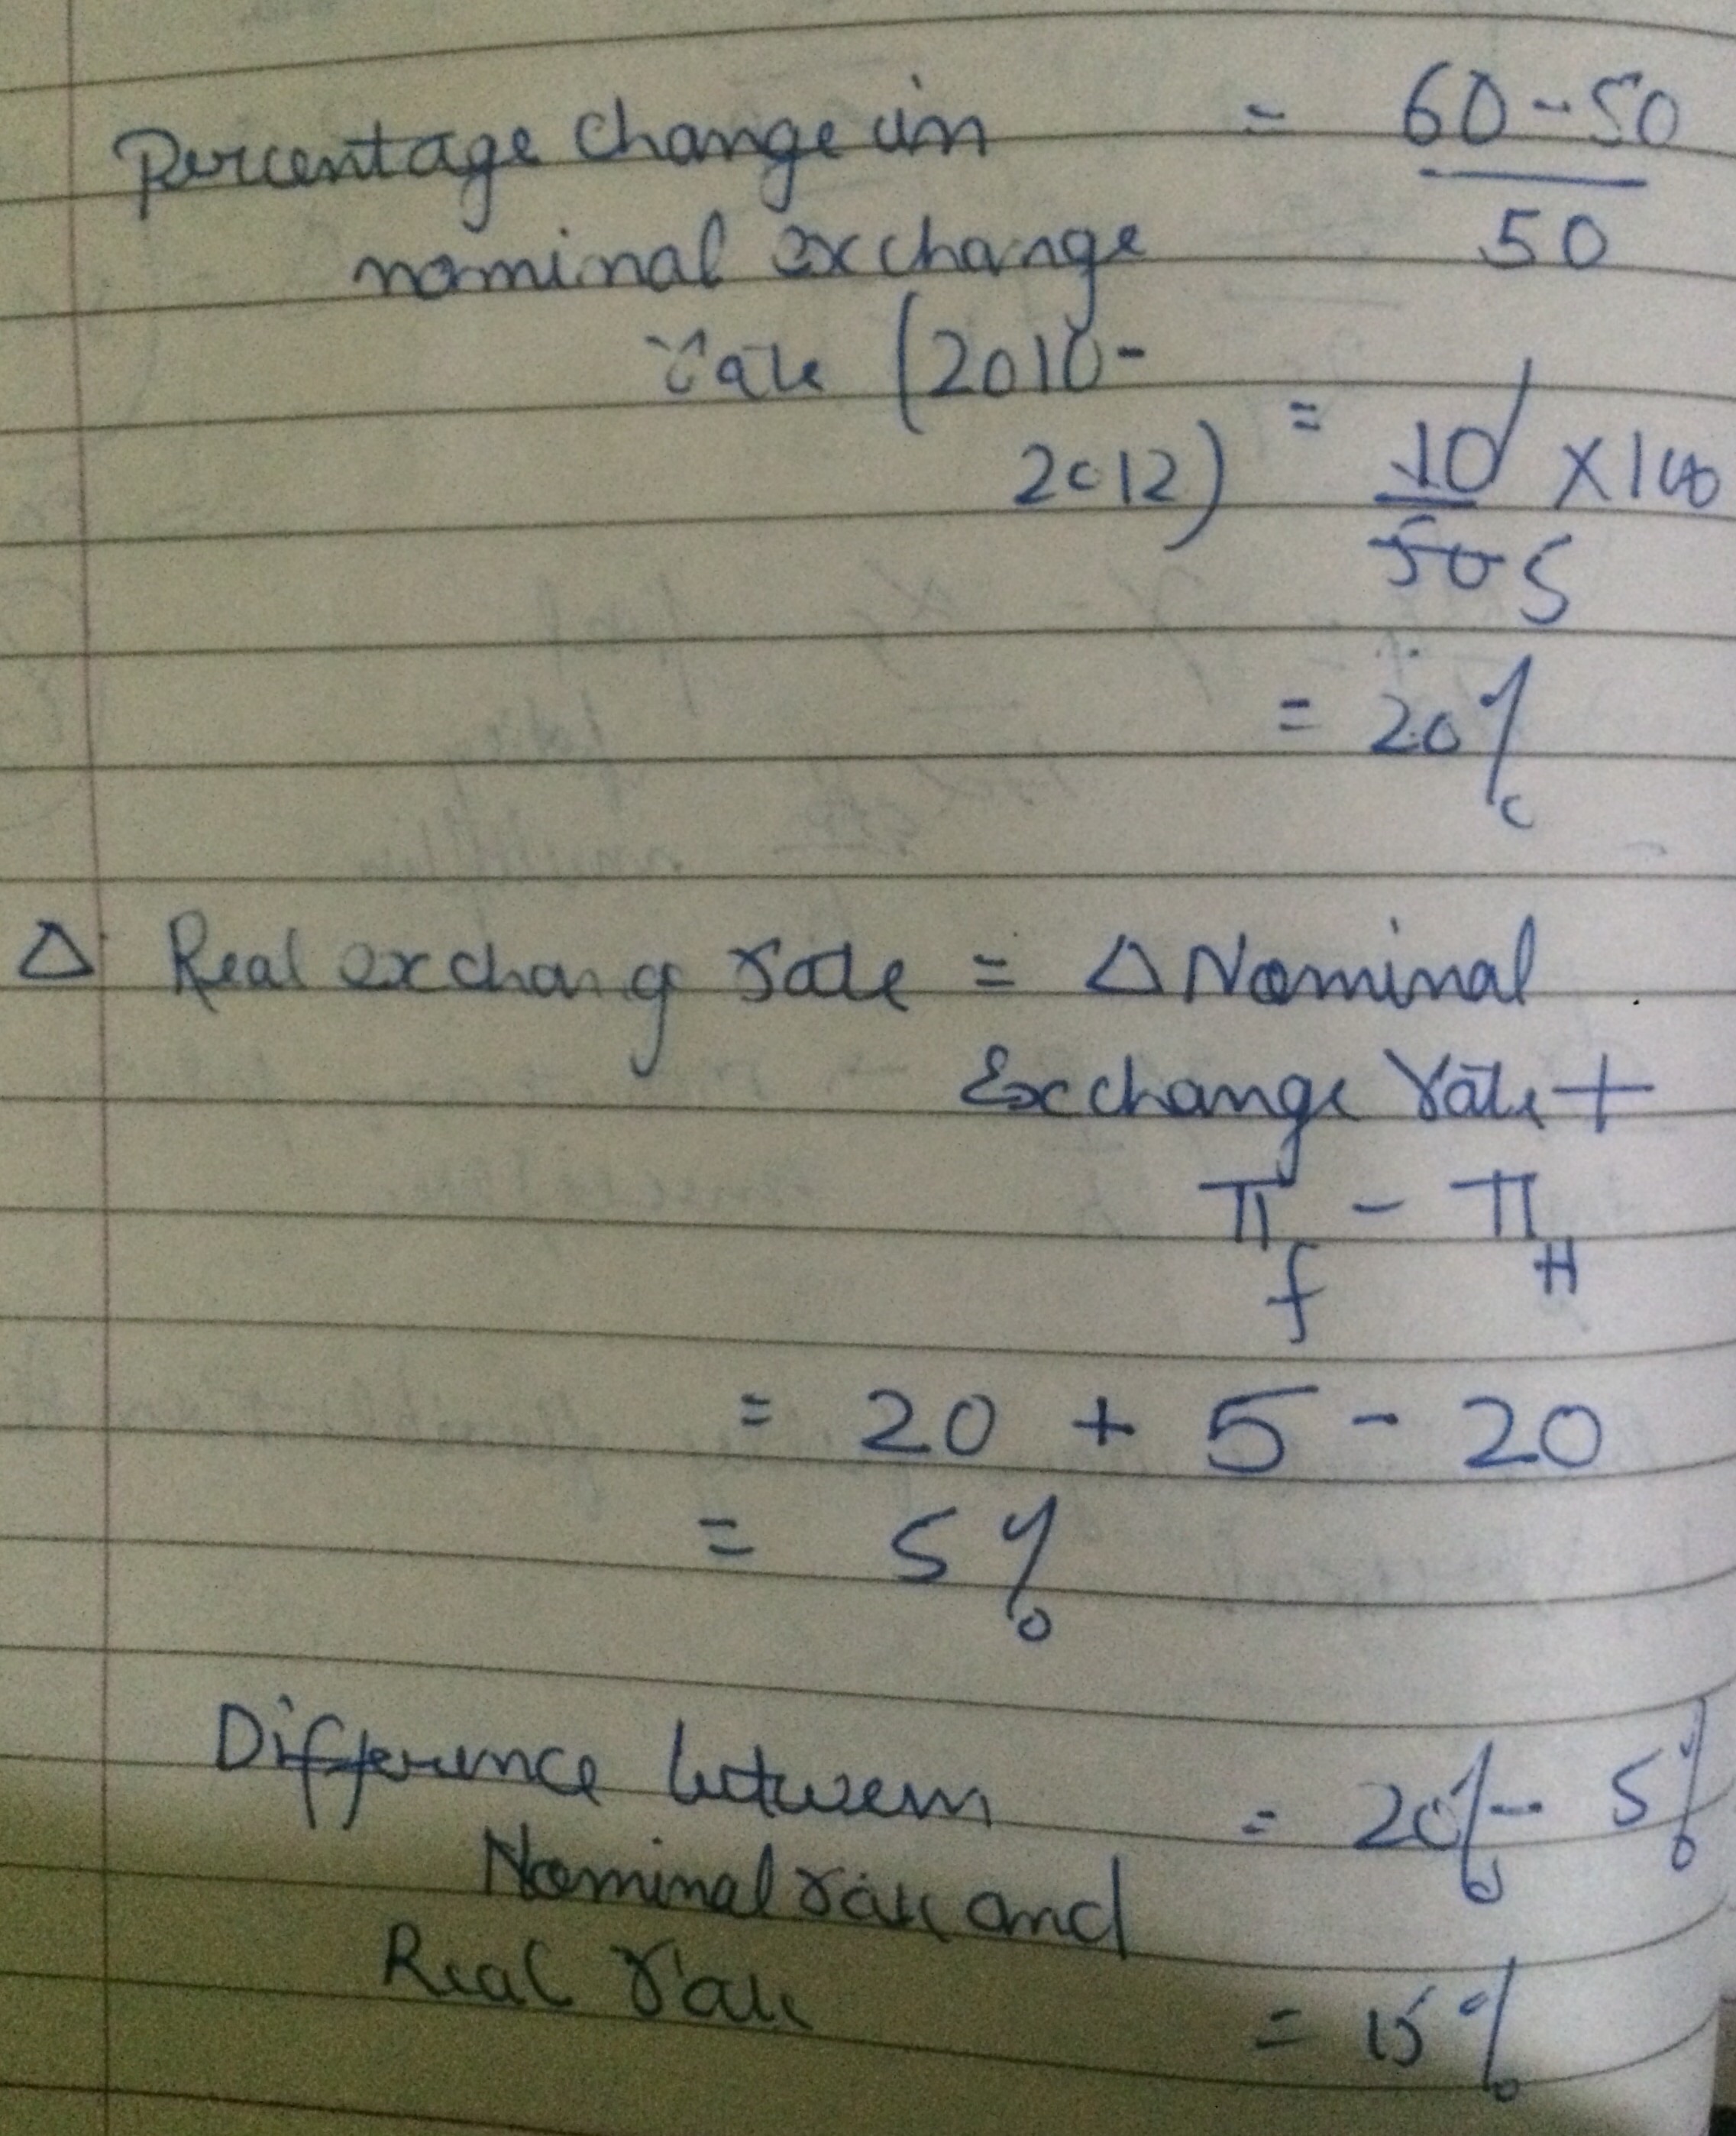 Percentage change in = 60-50
50
nominal exchange
rate (2010-
2012) = 10 x100
50 5
= 20%
Δ Real exchang rate = Δ Nominal
Exchange rate +
π f - π H
= 20 + 5 - 20
= 5%
Difference between = 20% - 5%
Nominal rate and
Real rate
= 15%